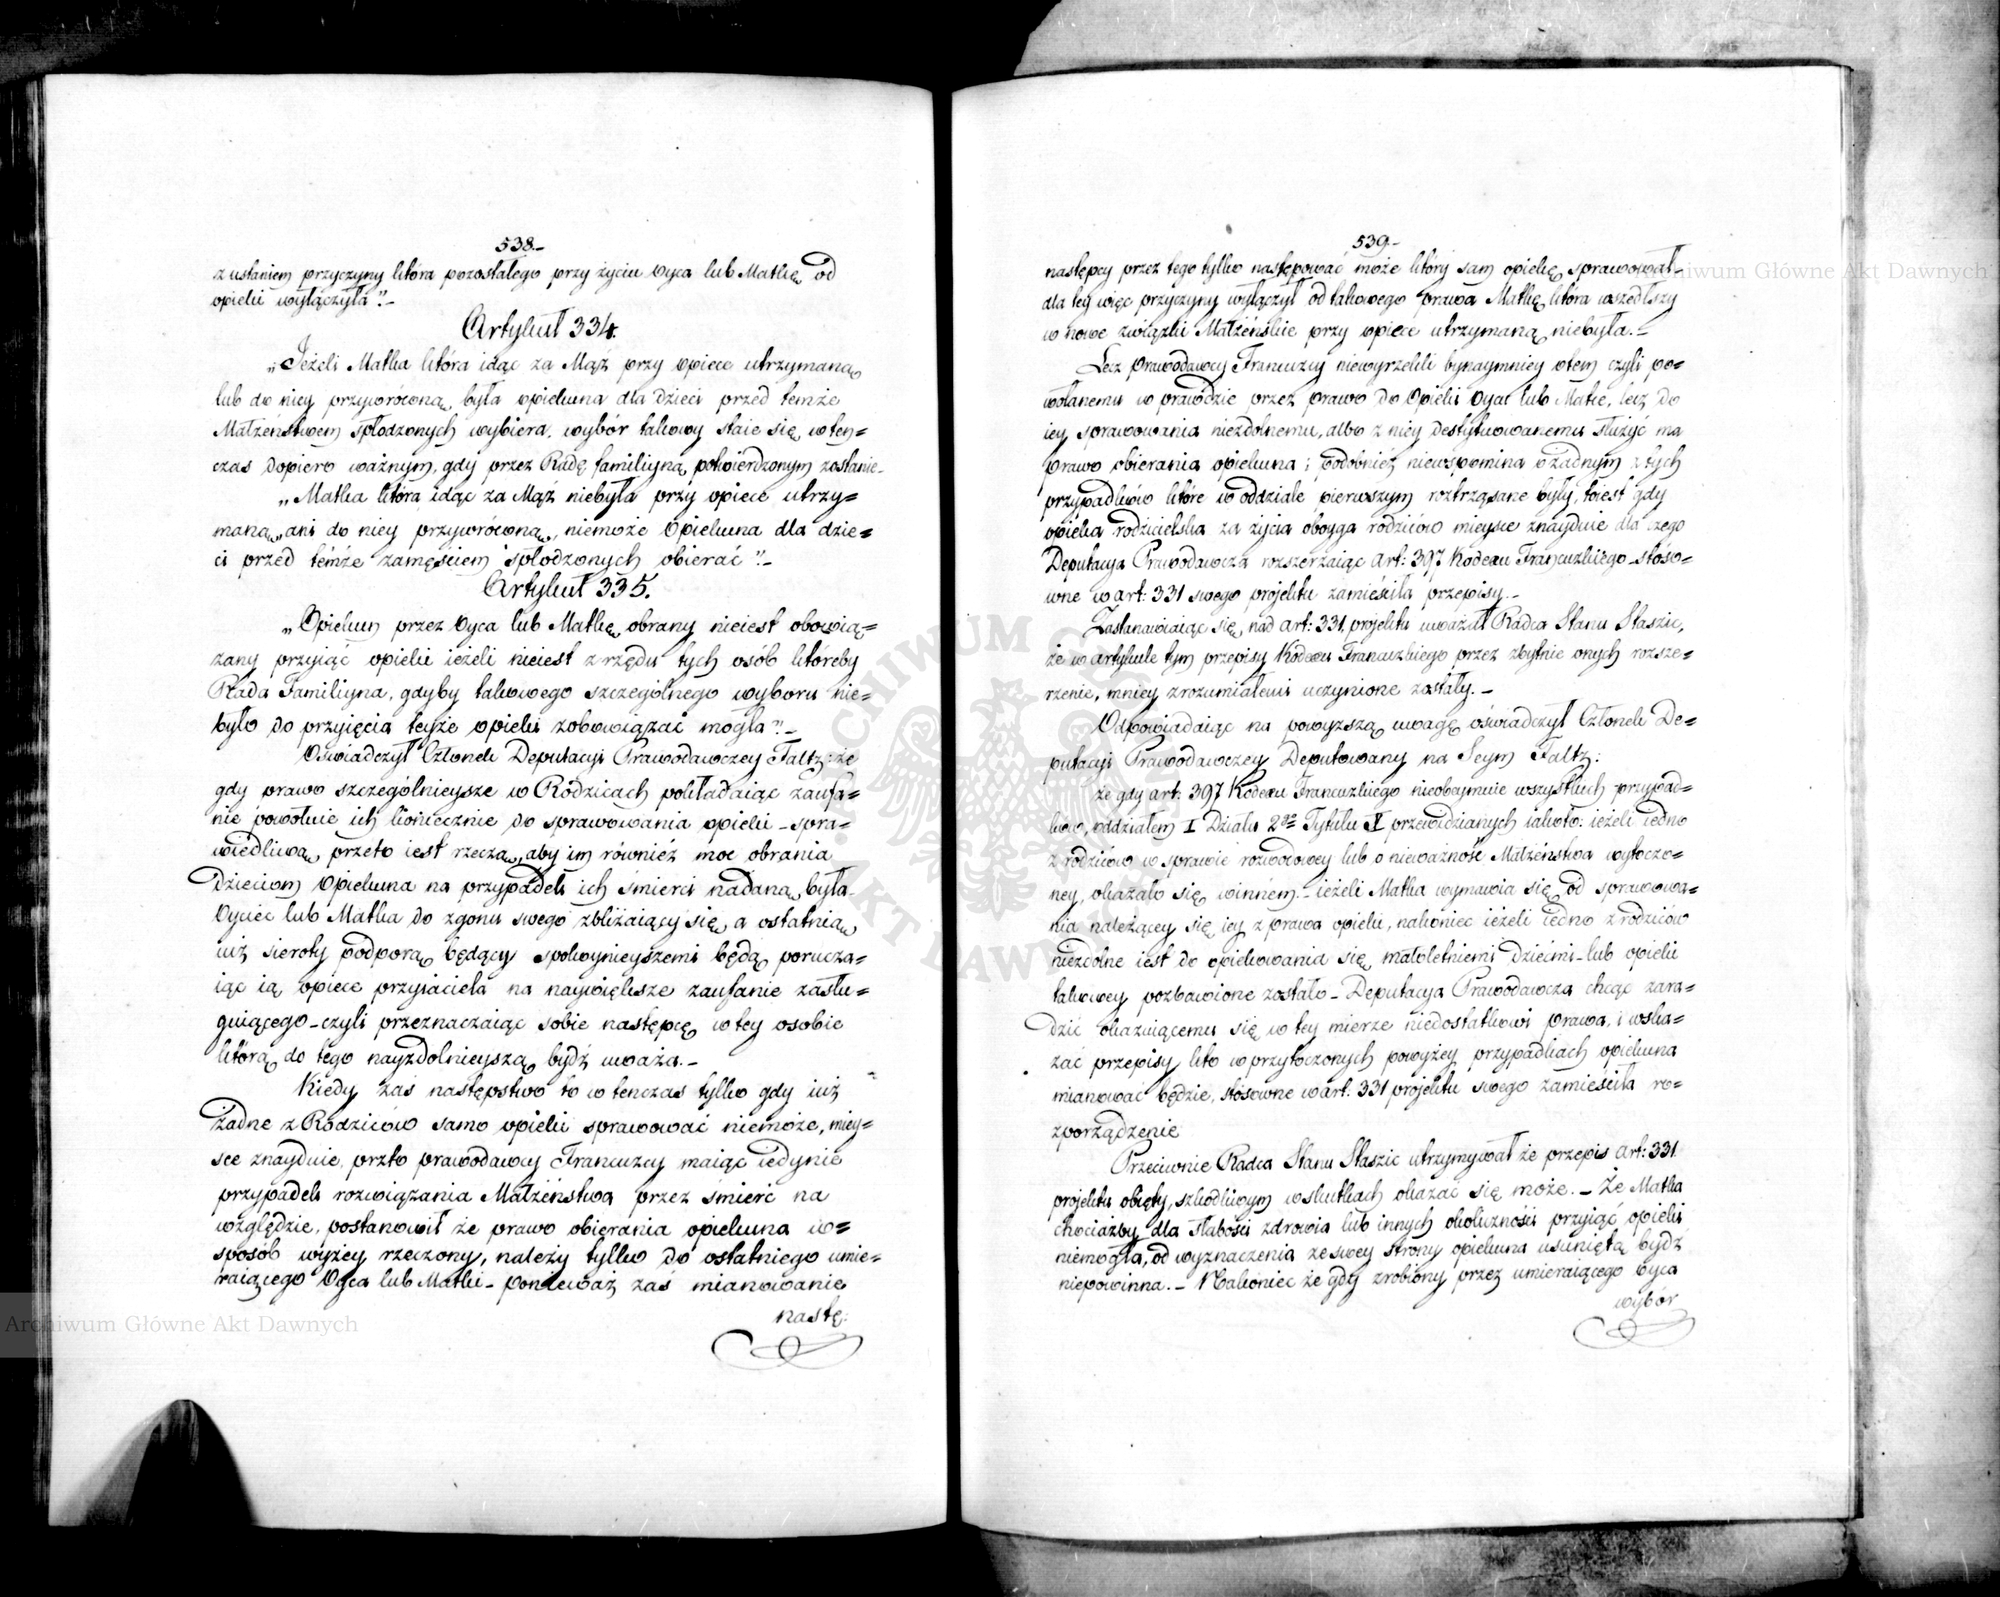 538.-
z ustaniem przyczyny która pozostałego przy życiu Oyca lub Matkę od
opieki wyłączyła".-
Artykuł 334.
„Jeżeli Matka która idąc za Mąż przy opiece utrzymaną
lub do niey przywróconą, była opiekuna dla dzieci przed temże
Małżeństwem spłodzonych wybiera, wybór takowy staie się wten=
czas dopiero ważnym, gdy przez Radę familiyną potwierdzonym zostanie.
„Matka która idąc za Mąż niebyła przy opiece utrzy=
maną, ani do niey przywróconą, niemoże Opiekuna dla dzie=
ci przed témże zamęściem spłodzonych obierać".-
Artykuł 335.
„Opiekun przez Oyca lub Matkę obrany nieiest obowią=
zany przyiąć opieki ieżeli nieiest z rzędu tych osób któreby
Rada Familiyna, gdyby takowego szczególnego wyboru nie=
było do przyięcia teyże opieki zobowiązać mogła".-
Oświadczył Członek Deputacyi Prawodawczey Faltz: że
gdy prawo szczególnieysze w Rodzicach pokładaiąc zaufa=
nie powołuie ich koniecznie do sprawowania opieki - spra=
wiedliwą przeto iest rzeczą, aby im również moc obrania
Dzieciom Opiekuna na przypadek ich śmierci nadaną była.
Oyciec lub Matka do zgonu swego zbliżaiący się, a ostatnią
iuż sieroty podporą będący spokoynieyszemi będą porucza=
iąc ią opiece przyiaciela na naywiększe zaufanie zasłu=
guiącego - czyli przeznaczaiąc sobie następcę w tey osobie
którą do tego nayzdolnieyszą bydź uważa.-
Kiedy zaś następstwo to w tenczas tylko gdy iuż
żadne z Rodziców samo opieki sprawować niemoże, miey=
sce znayduie, przto prawodawcy Francuzcy maiąc iedynie
przypadek rozwiązania Małżeństwa przez śmierć na
względzie, postanowił że prawo obiérania opiekuna w=
sposób wyżey rzeczony, należy tylko do ostatniego umie=
raiącego Oyca lub Matki - ponieważ zaś mianowanie
nastę:
539.-
następcy przez tego tylko następować może który sam opiekę sprawował-
dla tey więc przyczyny wyłączył od takowego prawa Matkę która wszedłszy
w nowe związki Małżeńskie przy opiece utrzymaną niebyła.-
Lecz Prawodawcy Francuzcy niewyrzekli bynaymniey o tem czyli po=
wołanemu w prawdzie przez prawo do Opieki Oycu lub Matce, lecz do
iey sprawowania niezdolnemu, albo z niey destytuowanemu służyć ma
prawo obierania opiekuna; podobnież niewspomina o żadnym z tych
przypadków które w oddziale pierwszym roztrząsane były, toiest gdy
opieka rodzicielska za życia oboyga rodziców mieysce znayduie dla czego
Deputacya Prawodawcza rozszerzaiąc art: 397 Kodexu Francuzkiego - stoso=
wne w art: 331 swego projektu zamieściła przepisy.-
Zastanawiaiąc się nad art: 331 projektu uważał Radca Stanu Staszic,
że w artykule tym przepisy Kodexu Francuzkiego przez zbytnie onych rozsze=
rzenie, mniey zrozumiałemi uczynione zostały.-
Odpowiadaiąc na powyższą uwagę oświadczył Członek De=
putacyi Prawodawczey Deputowany na Seym Faltz:
że gdy art: 397 Kodexu Francuzkiego nieobeymuie wszystkich przypad=
ków, oddziałem I Działu 2go Tytułu X przewidzianych iakoto: ieżeli iedno
z rodziców w sprawie rozwodowey lub o nieważność Małżeństwa wytoczo=
ney, okazało się winném - ieżeli Matka wymawia się od sprawowa=
nia należącey się iey z prawa opieki, nakoniec ieżeli iedno z rodziców
niezdolne iest do opiekowania się małoletniemi dziećmi - lub opieki
takowey pozbawione zostało - Deputacya Prawodawcza chcąc zara=
dzić okazuiącemu się w tey mierze niedostatkowi prawa, i wska=
zać przepisy kto w przytoczonych powyżey przypadkach opiekuna
mianować będzie, stósowne w art: 331 projektu swego zamieściła ro=
zporządzenie
Przeciwnie Radca Stanu Staszic utrzymywał że przepis art: 331
projektu obięty, szkodliwym w skutkach okazać się może.- Że Matka
chociażby dla słabości zdrowia lub innych okoliczności przyiąć opieki
niemogła, od wyznaczenia ze swey strony opiekuna usuniętą bydź
niepowinna.- Nakoniec że gdy zrobiony przez umieraiącego Oyca
wybór
Archiwum Główne Akt Dawnych
Archiwum Główne Akt Dawnych
ARCHIWUM GŁÓWNE AKT DAWNYCH